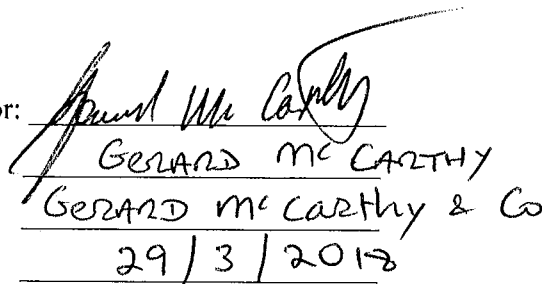 or: Gerard Mc Carthy
GERARD Mc CARTHY
GERARD Mc Carthy & Co
29/3/2018